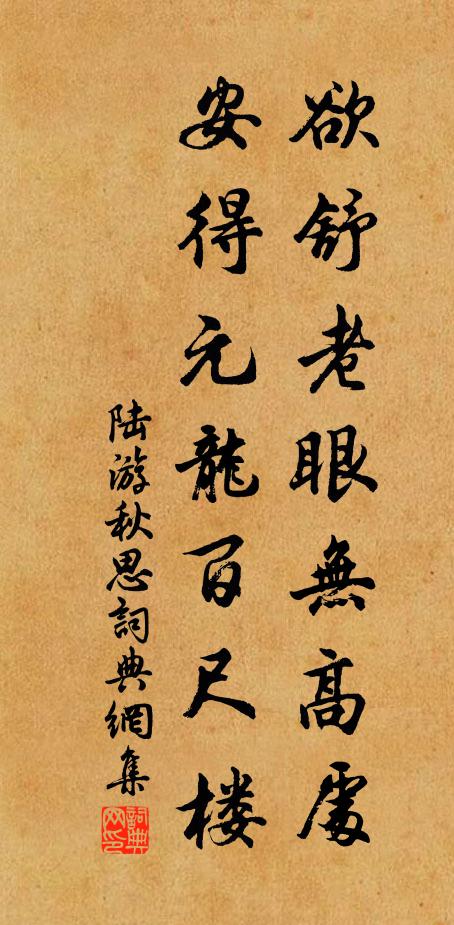 欲舒老眼無高處
安得元龍百尺楼
陆游秋思詞典網集
詞典網印